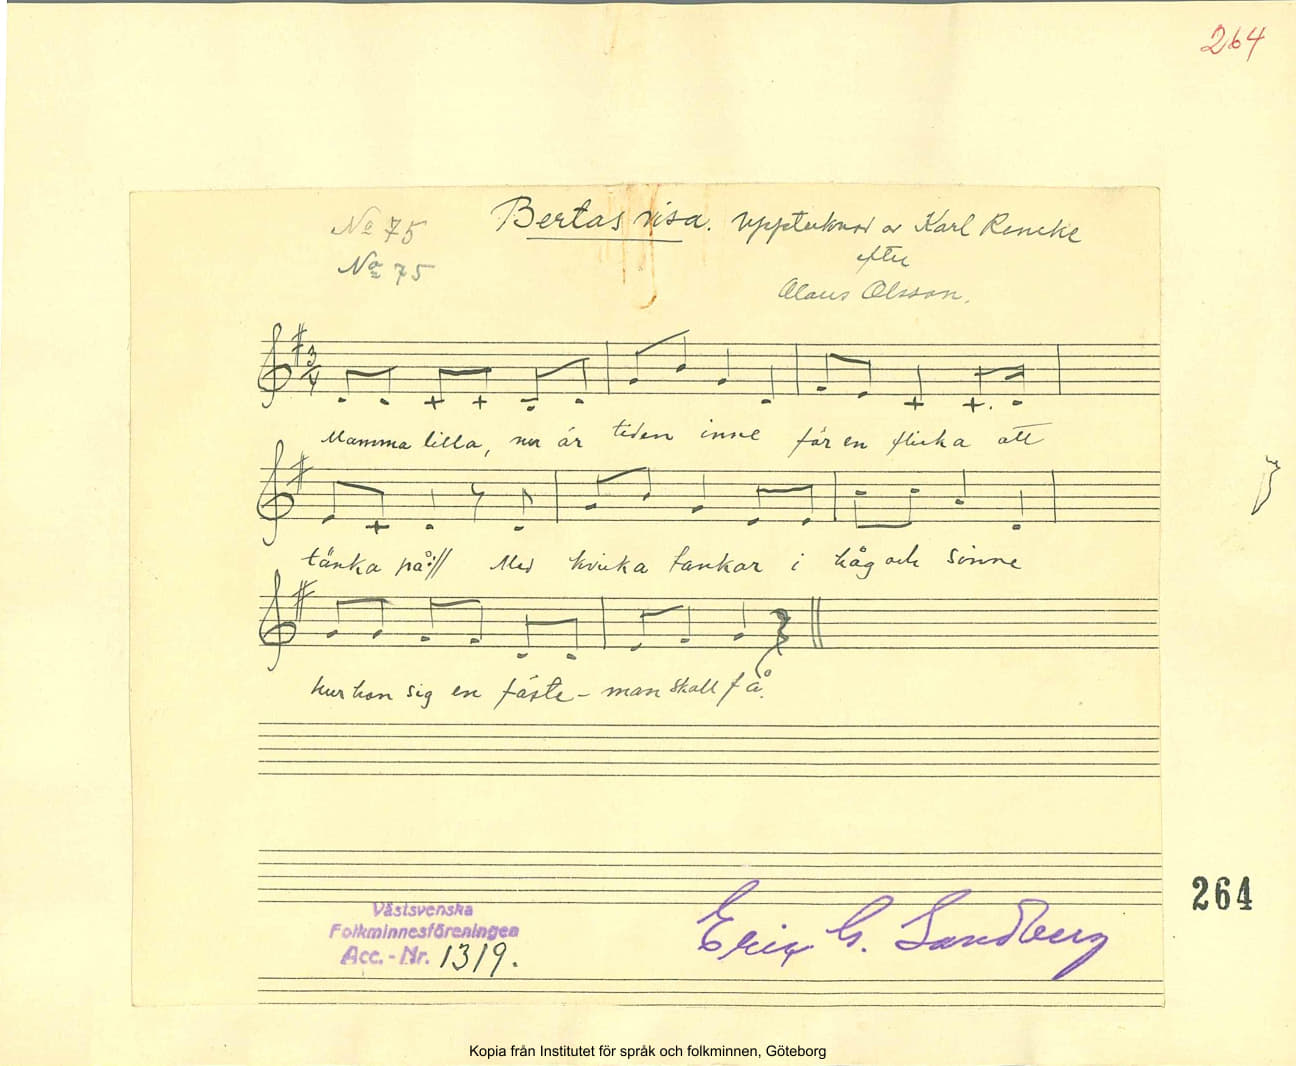 264
No 75 Bertas visa. Upptecknad av Karl Reneke
No 75 efter
Olaus Olsson.
3/4
Mamma lilla, nu är tiden inne för en flicka att
tänka på:// Med kvicka tankar i håg och sinne
hur hon sig en fäste-man skall få.
264
Västsvenska
Folkminnesföreningen
Acc.-Nr. 1319.
Eric G. Sandberg
Kopia från Institutet för språk och folkminnen, Göteborg